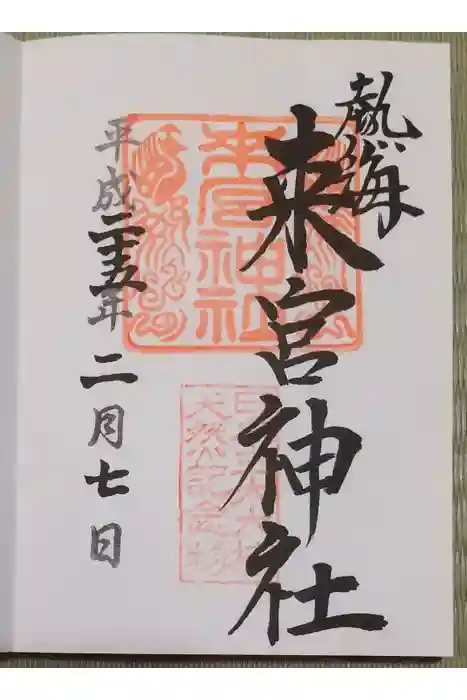 熱海
来宮神社
来宮神社
天然記念物
平成二十五年二月七日